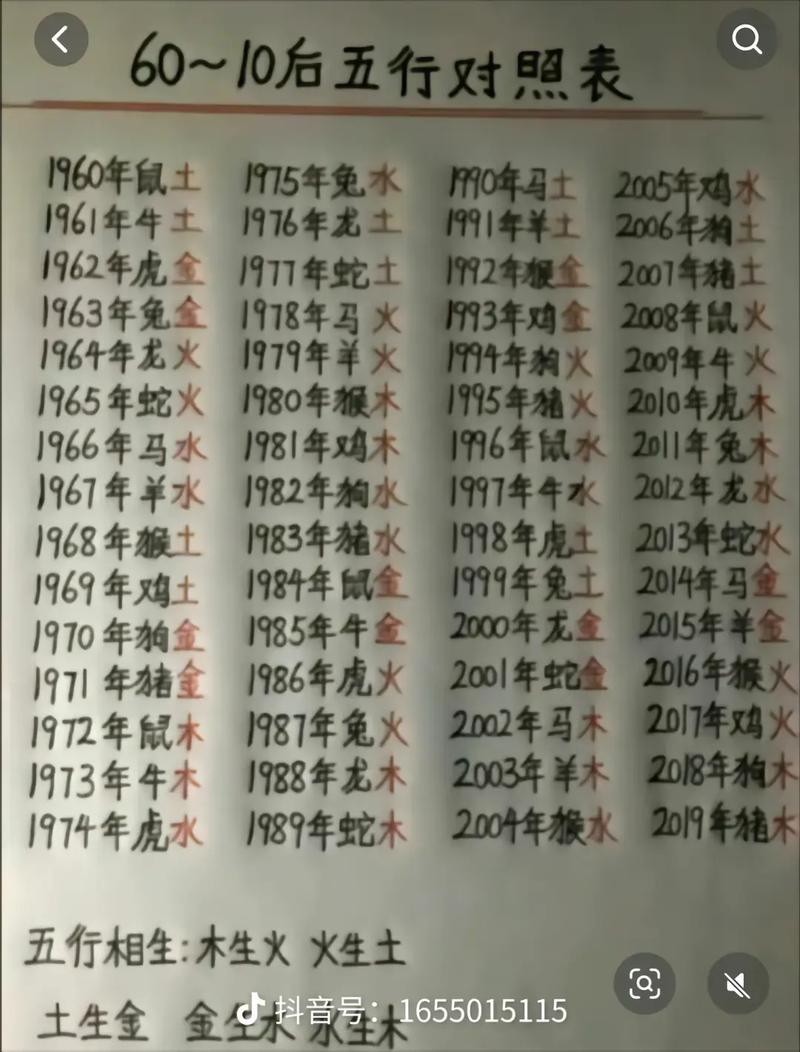 60~10后五行对照表
1960年鼠土 1975年兔水 1990年马土 2005年鸡水
1961年牛土 1976年龙土 1991年羊土 2006年狗土
1962年虎金 1977年蛇土 1992年猴金 2007年猪土
1963年兔金 1978年马火 1993年鸡金 2008年鼠火
1964年龙火 1979年羊火 1994年狗火 2009年牛火
1965年蛇火 1980年猴木 1995年猪火 2010年虎木
1966年马水 1981年鸡木 1996年鼠水 2011年兔木
1967年羊水 1982年狗水 1997年牛水 2012年龙水
1968年猴土 1983年猪水 1998年虎土 2013年蛇水
1969年鸡土 1984年鼠金 1999年兔土 2014年马金
1970年狗金 1985年牛金 2000年龙金 2015年羊金
1971年猪金 1986年虎火 2001年蛇金 2016年猴火
1972年鼠木 1987年兔火 2002年马木 2017年鸡火
1973年牛木 1988年龙木 2003年羊木 2018年狗木
1974年虎水 1989年蛇木 2004年猴水 2019年猪木
五行相生:木生火 火生土
土生金 金生水 水生木
抖音号：1655015115